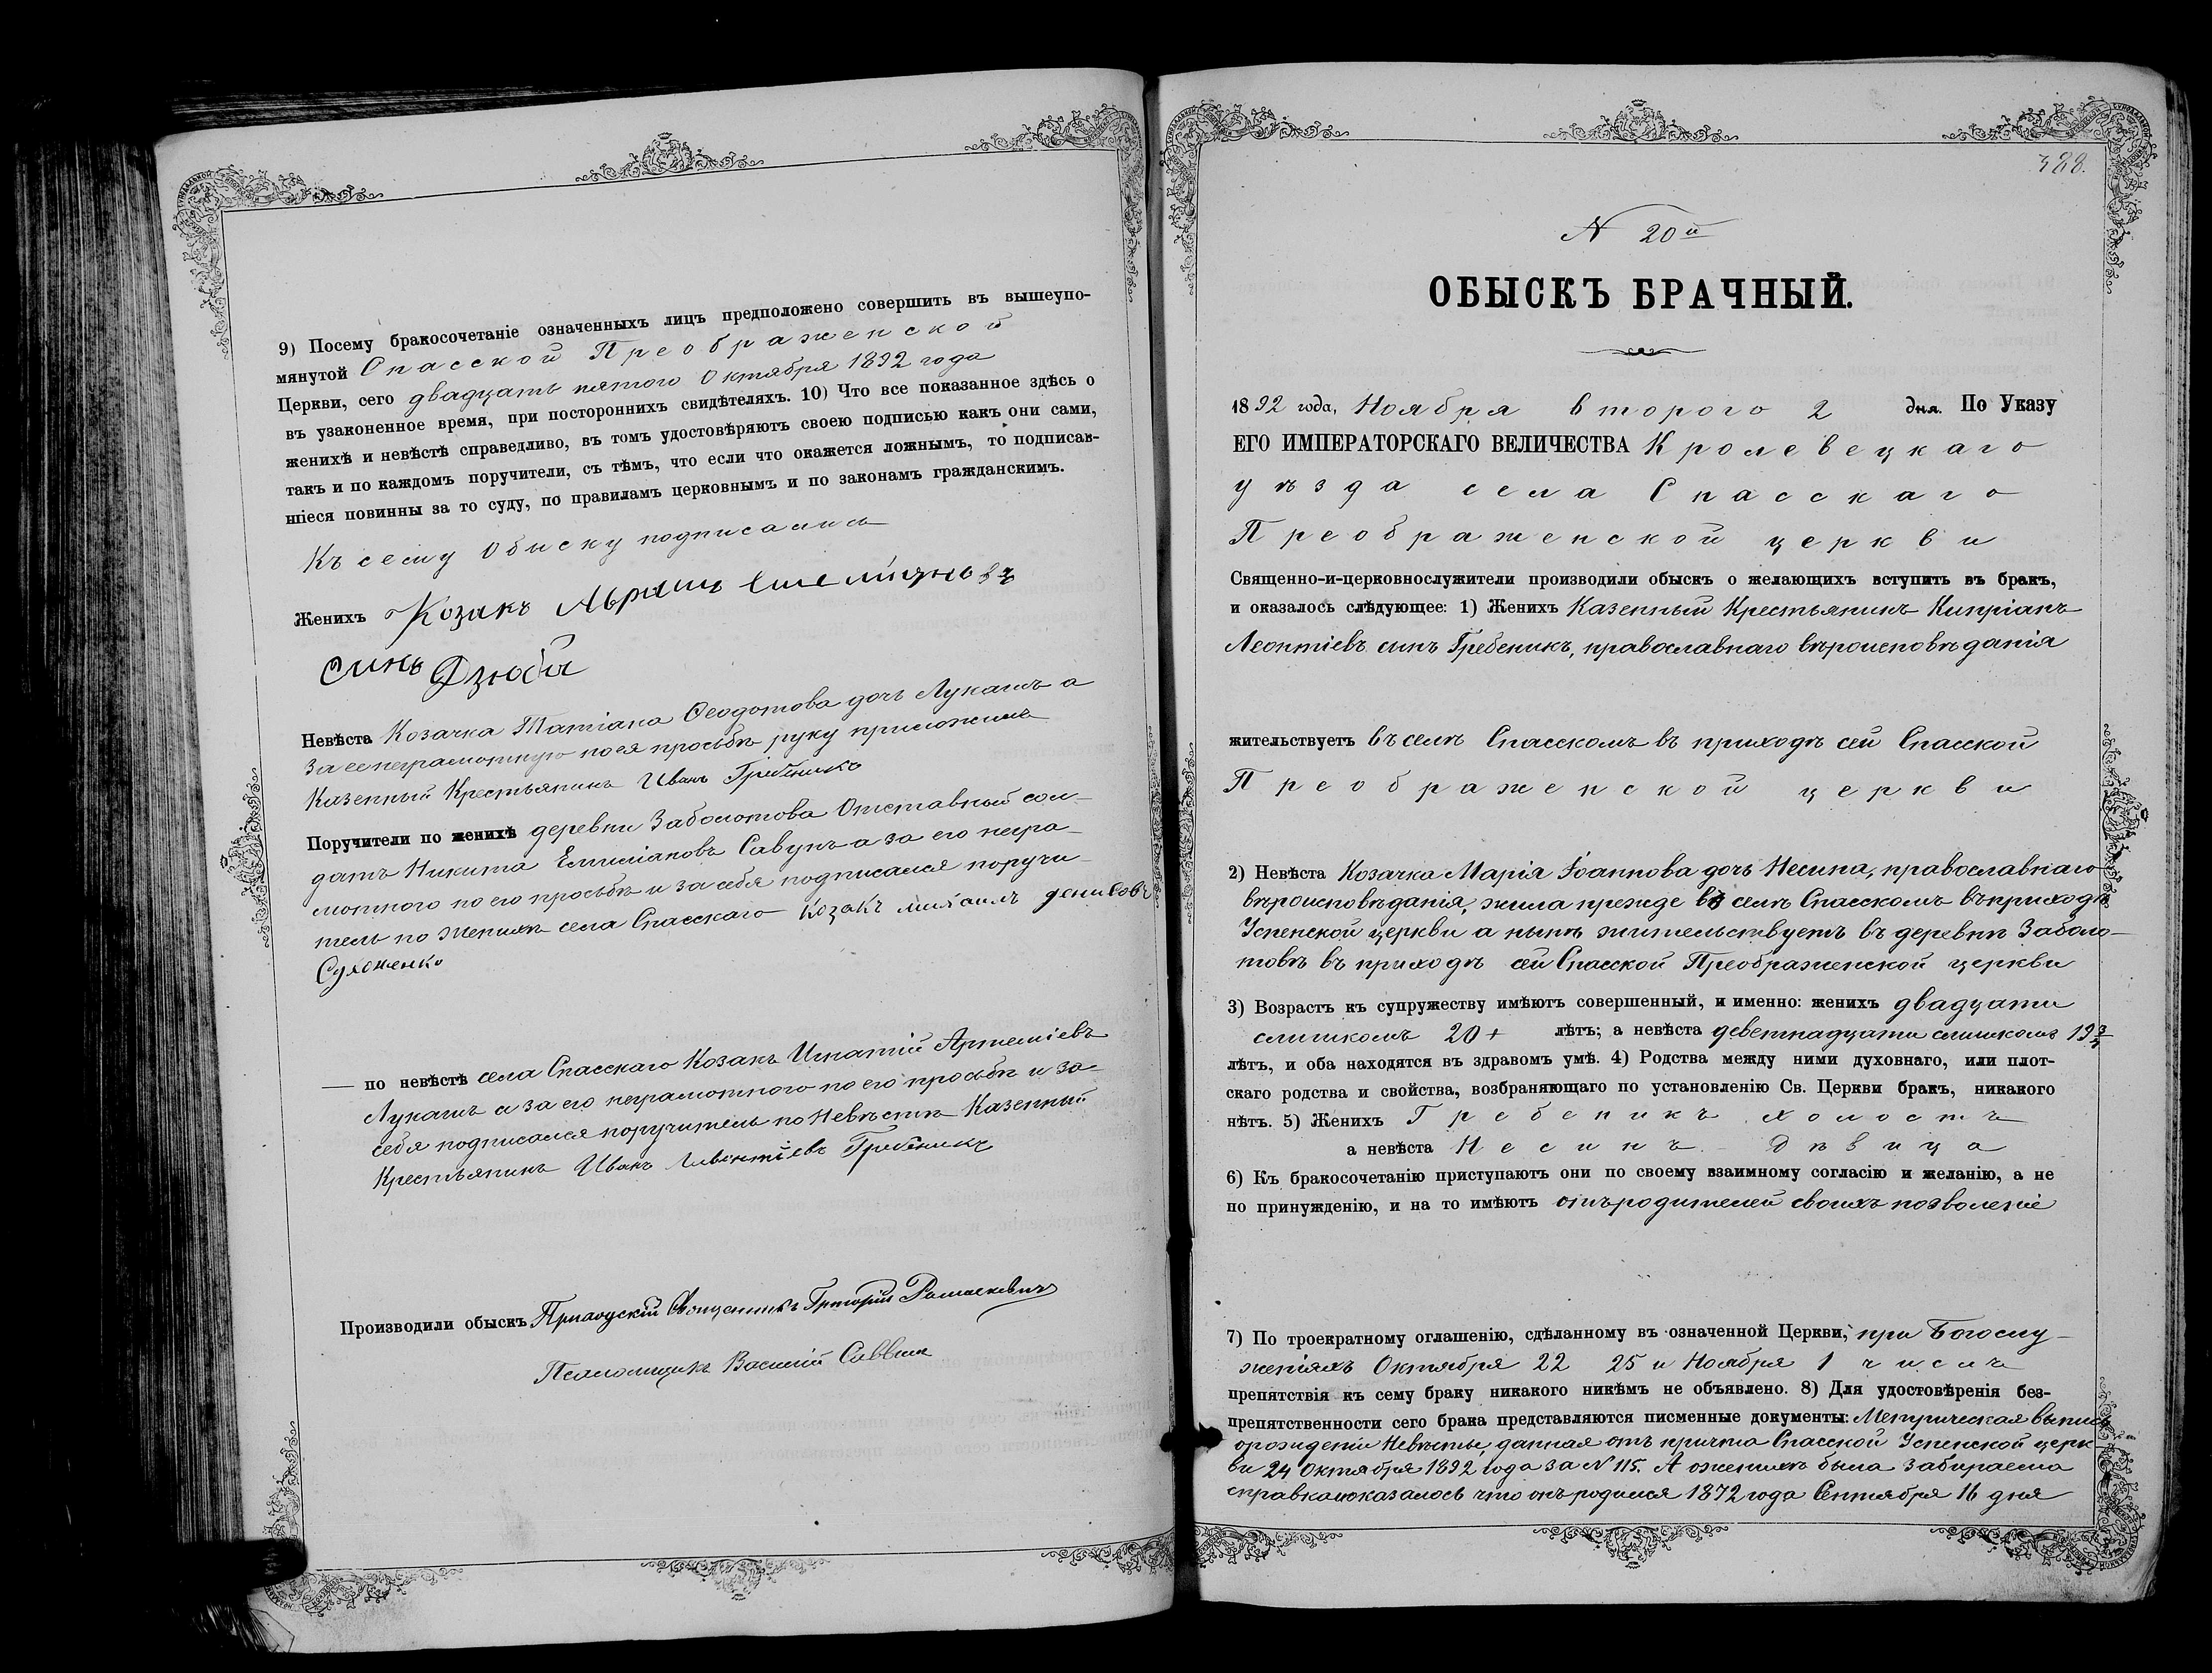 9) Посему бракосочетаніе означенныхъ лицъ предположено совершить въ вышеупо-
мянутой Спасской Преображенской
Церкви, сего двадцать пятого Октября 1892 года
въ узаконенное время, при постороннихъ свидѣтеляхъ. 10) Что все показанное здѣсь о
женихѣ и невѣстѣ справедливо, въ томъ удостовѣряютъ своею подписью какъ они сами,
такъ и по каждомъ поручители, съ тѣмъ, что если что окажется ложнымъ, то подписав-
шіеся повинны за то суду, по правиламъ церковнымъ и по законамъ гражданскимъ.
Къ сему Обыску подписались
Женихъ Козакъ Аврамъ
синъ Дзюба
Невѣста Козачка Татіана Ѳеодотова дочь Лукашъ а
за ее неграмотную по ея просьбѣ руку приложилъ
Казенный Крестьянинъ Иванъ Гребеникъ
Поручители по женихѣ деревни Заболотова Отставный сол-
датъ Никита Емиліановъ Савунъ а за его негра-
мотного по его просьбѣ и за себя подписался поручи-
тель по Женихѣ села Спасскаго Козакъ михаилъ денисовъ
Сухоненко
— по невѣстѣ села Спасскаго Козакъ Игнатій Артеміевъ
Лукашъ а за его неграмотного по его просьбѣ и за
себя подписался поручитель по Невѣстѣ Казенный
Крестьянинъ Иванъ Гребеникъ
Производили обыскъ Приходскій Священникъ Григорій Ромаскевичъ
Псаломщикъ Василій Саввич
388.
N 20й
ОБЫСКЪ БРАЧНЫЙ.
1892 года, Ноября второго 2 дня. По Указу
ЕГО ИМПЕРАТОРСКАГО ВЕЛИЧЕСТВА Кролевецкаго
уѣзда села Спасскаго
Преображенской церкви
Священно-и-церковнослужители производили обыскъ о желающихъ вступить въ бракъ,
и оказалось слѣдующее: 1) Женихъ Казенный Крестьянинъ Кипріанъ
Леонтіевъ сынъ Гребеникъ, православнаго вѣроисповѣданія
жительствуетъ въ селѣ Спасскомъ въ приходѣ сей Спасской
Преображенской церкви
2) Невѣста Козачка Марія Іоаннова дочь Несина, православнаго
вѣроисповѣданія, жила прежде въ селѣ Спасскомъ въ приходѣ
Успенской церкви а нынѣ жительствуетъ въ деревнѣ Заболо-
товѣ въ приходѣ сей Спасской Преображенской церкви
3) Возрастъ къ супружеству имѣютъ совершенный, и именно: женихъ двадцати
слишкомъ 20+ лѣтъ; а невѣста деветнадцати слишкомъ 19 3/4
лѣтъ, и оба находятся въ здравомъ умѣ. 4) Родства между ними духовнаго, или плот-
скаго родства и свойства, возбраняющаго по установленію Св. Церкви бракъ, никакого
нѣтъ. 5) Женихъ Гребеникъ холостъ
а невѣста Несинъ - Дѣвица
6) Къ бракосочетанію приступаютъ они по своему взаимному согласію и желанію, а не
по принужденію, и на то имѣютъ отъ родителей своихъ позволеніе
7) По троекратному оглашенію, сдѣланному въ означенной Церкви, при Богослу-
женіяхъ Октября 22 25 и Ноября 1 числъ
препятствія къ сему браку никакого никѣмъ не объявлено. 8) Для удостовѣренія без-
препятственности сего брака представляются писменные документы: Метрическая выпись
о рожденіи Невѣсты, данная отъ причта Спасской Успенской церк-
ви 24 Октября 1892 года за N 115. А о женихѣ была забираема
справка и оказалось что онъ родился 1872 года Сентября 16 дня